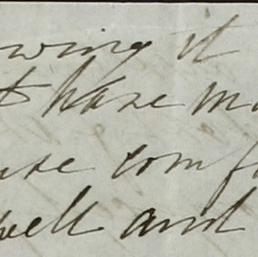 owing it
t have m
use comf
well and